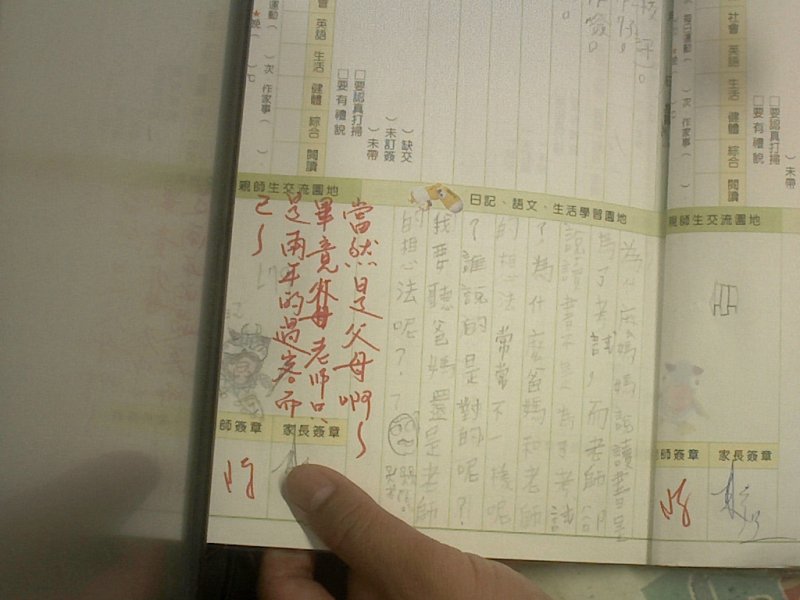 社會
英語
生活
健體
綜合
閱讀
□要認真打掃
□要有禮貌
）缺交
）未訂簽
）未帶
）次 作家事（
日記、語文、生活學習園地
親師生交流園地
為什麼媽媽說讀書是
為了考試，而老師卻
說讀書不是為了考試
了為什麼爸媽和老師
的想法常常不一樣呢
？誰說的是對的呢？
我要聽爸媽還是老師
的想法呢？
當然是父母啊～
畢竟父母老師只
是兩年的過客而
已～
師簽章
家長簽章
社會
英語
生活
健體
綜合
閱讀
□要認真打掃
□要有禮貌
）未帶
）次 作家事（
親師生交流園地
師簽章
家長簽章